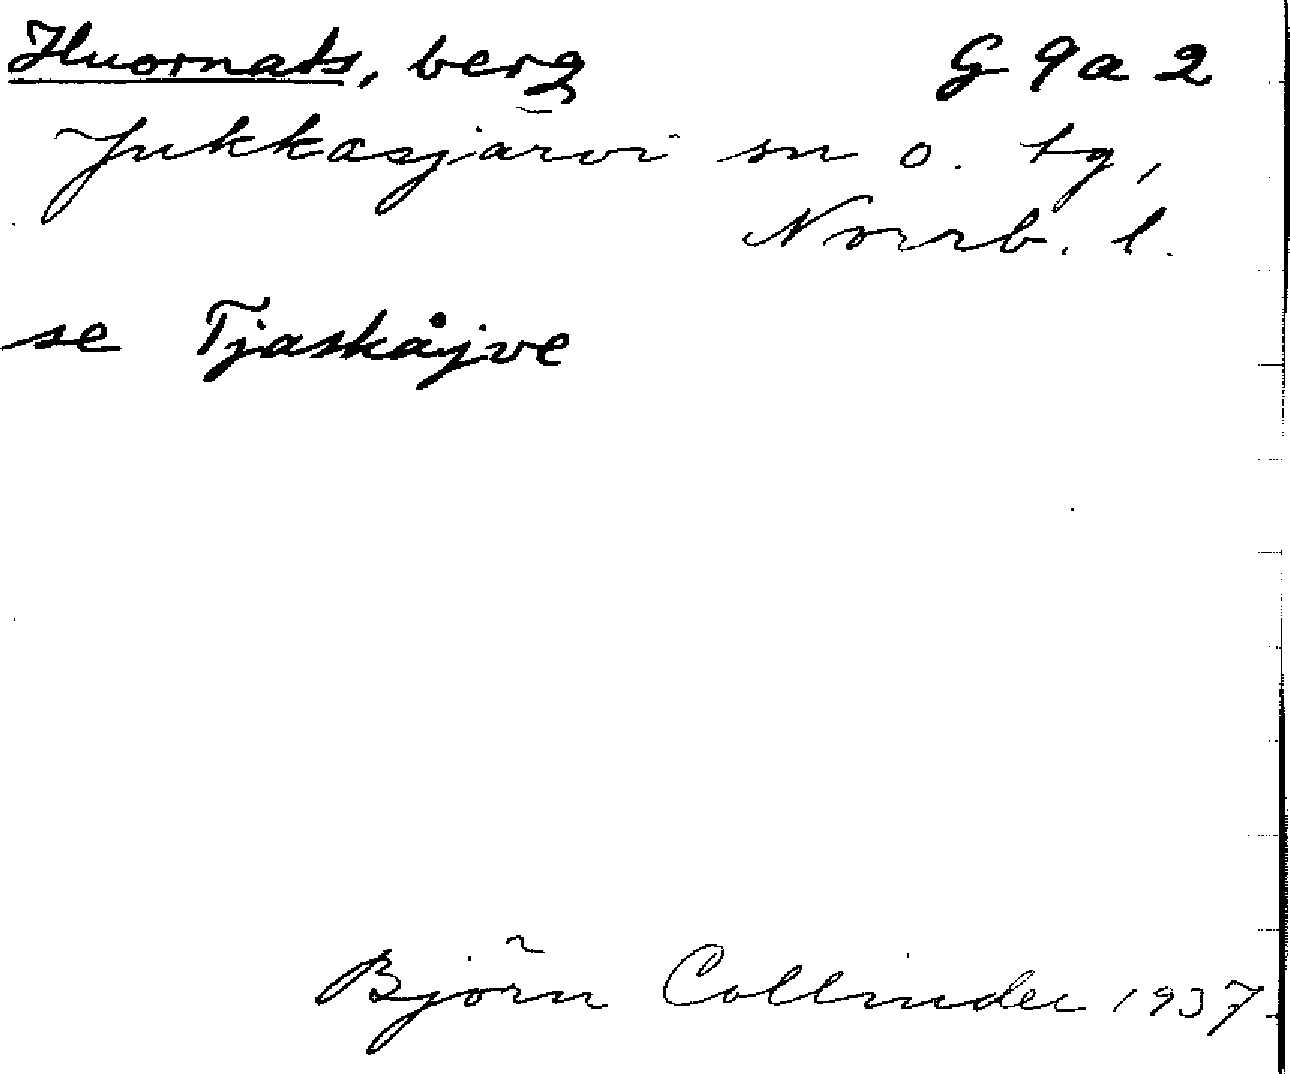 Huornats, berg G 9 a 2
Jukkasjärvi sn o. tg,
Norrb. l.
se Tjaskåjve
Björn Collinder 1937